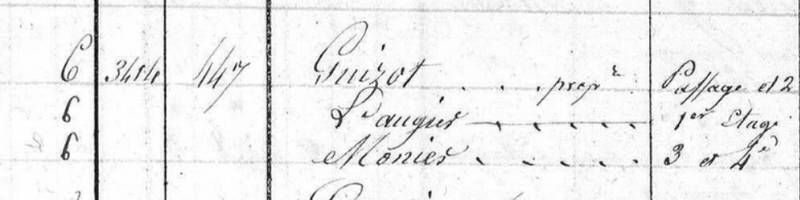 6 3484 447 Guizot . . . propre Passage et 2
6 Laugier 1er Etage
6 Monier 3 et 4e